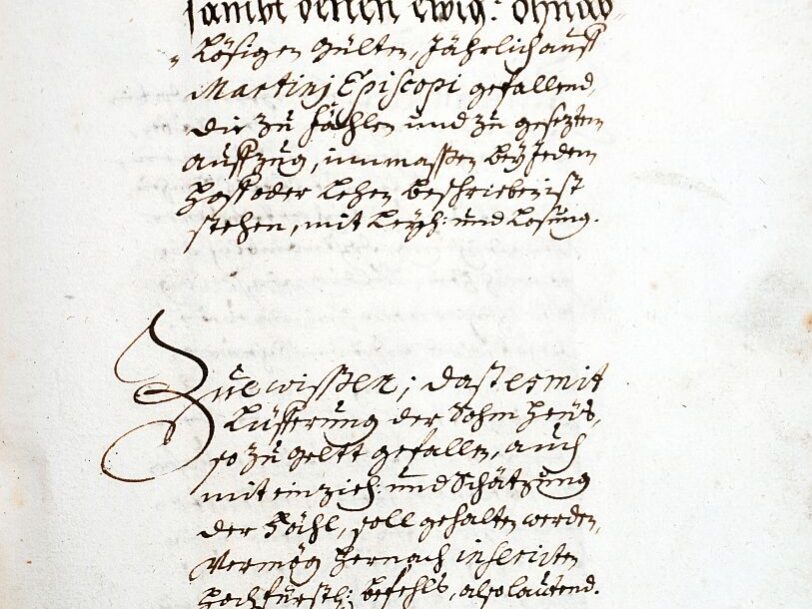 sambt denen ewig: ohnab-
lösigen Gülten, Jährlich auff
Martinj Episcopi gefallend,
die zu fählen und zu gesezten
auffzüg, inmassen beÿ Jedem
Hoff oder Lehen beschrieben ist
stehen, mit Leyh: und Losung.
Zue wissen; dass es mit
Lüfferung der
so zu gellt gefallen, auch
mit einzieh: und Schätzung
der Fähl, soll gehalten werden,
Vermög hernach inserirten
Hochfürstl: befehls, also lautend.